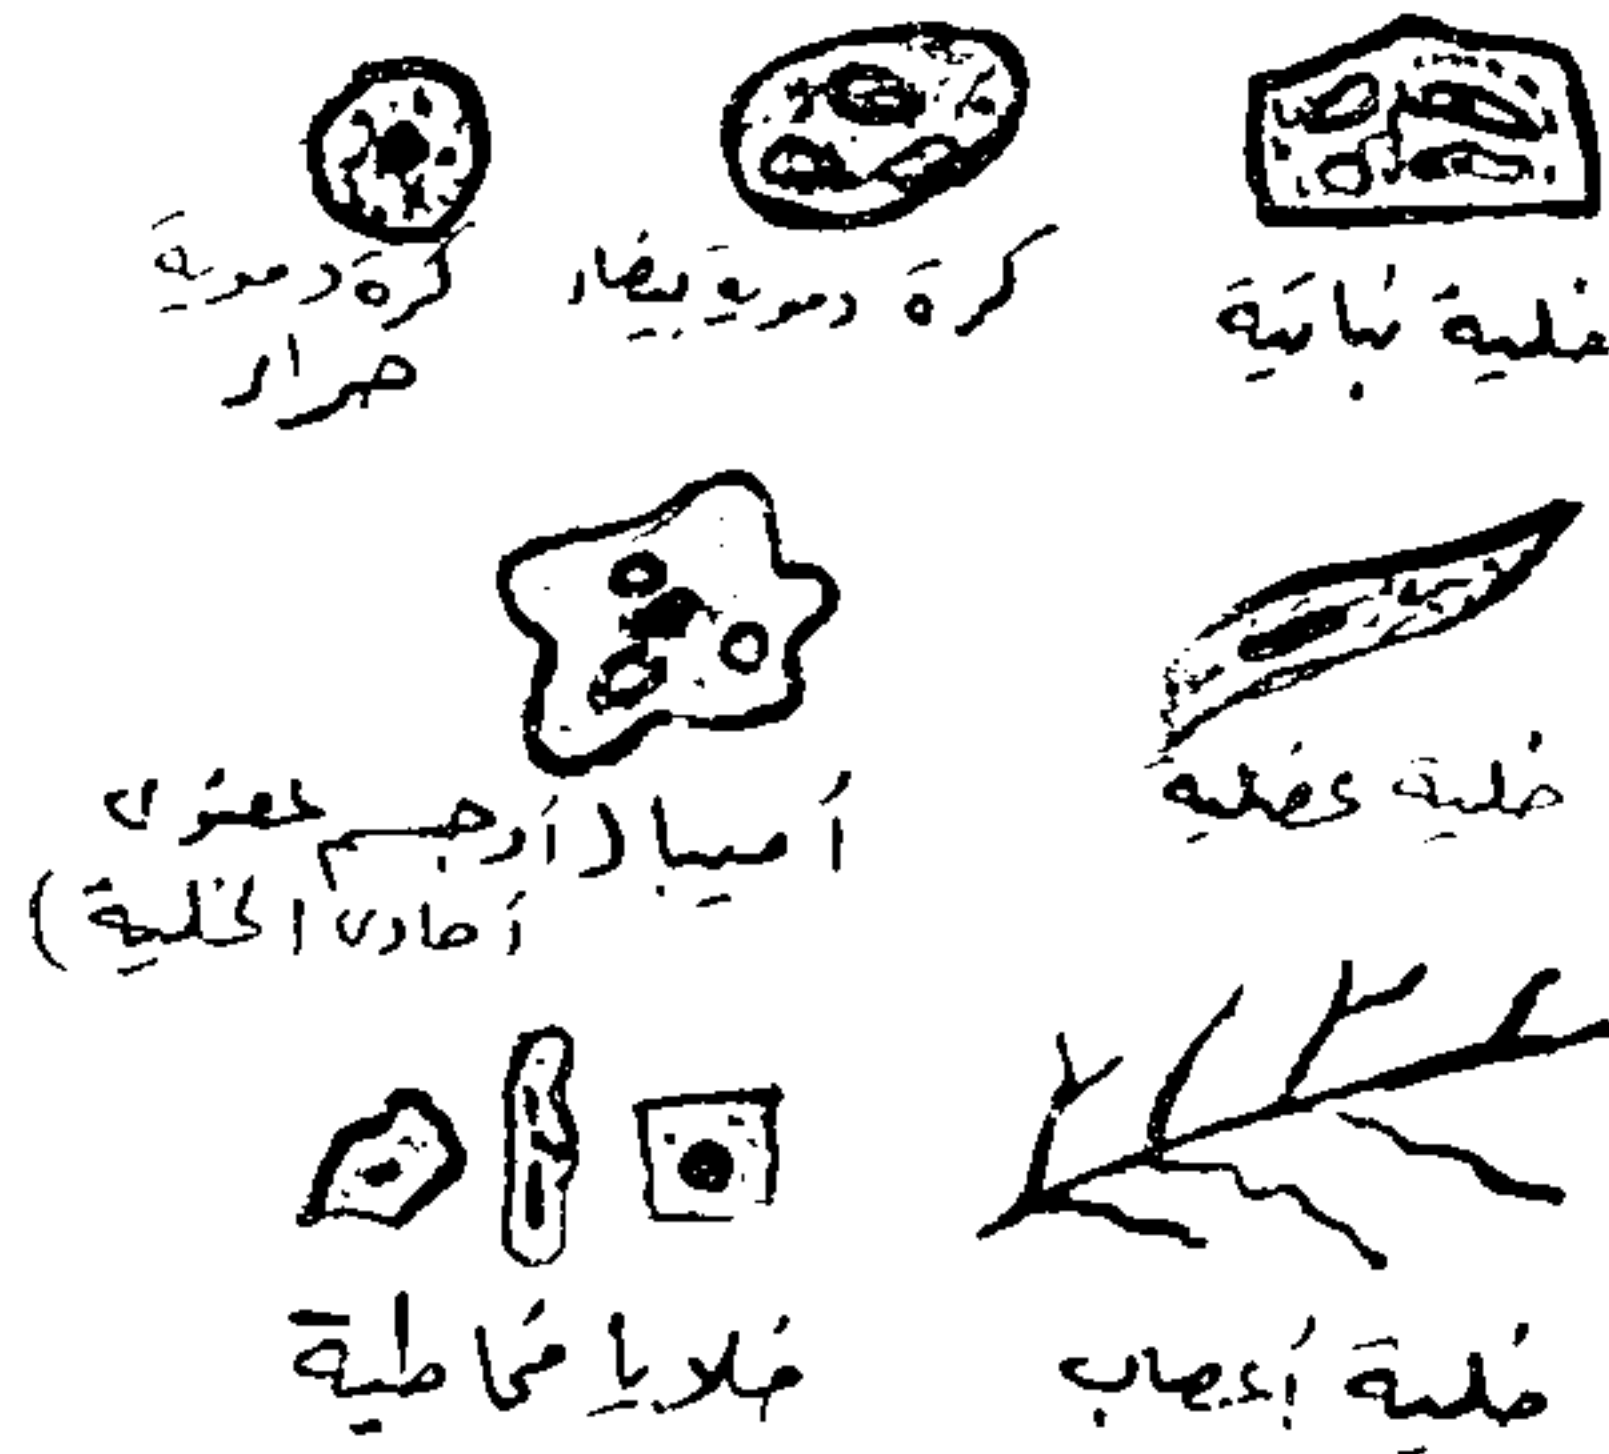 خلية نباتية
كرة دموية بيضاء
كرة دموية
حمراء
خلية عضلية
أميبا (أوجسم عضوى
أحادى الخلية)
خلية أعصاب
خلايا مخاطية